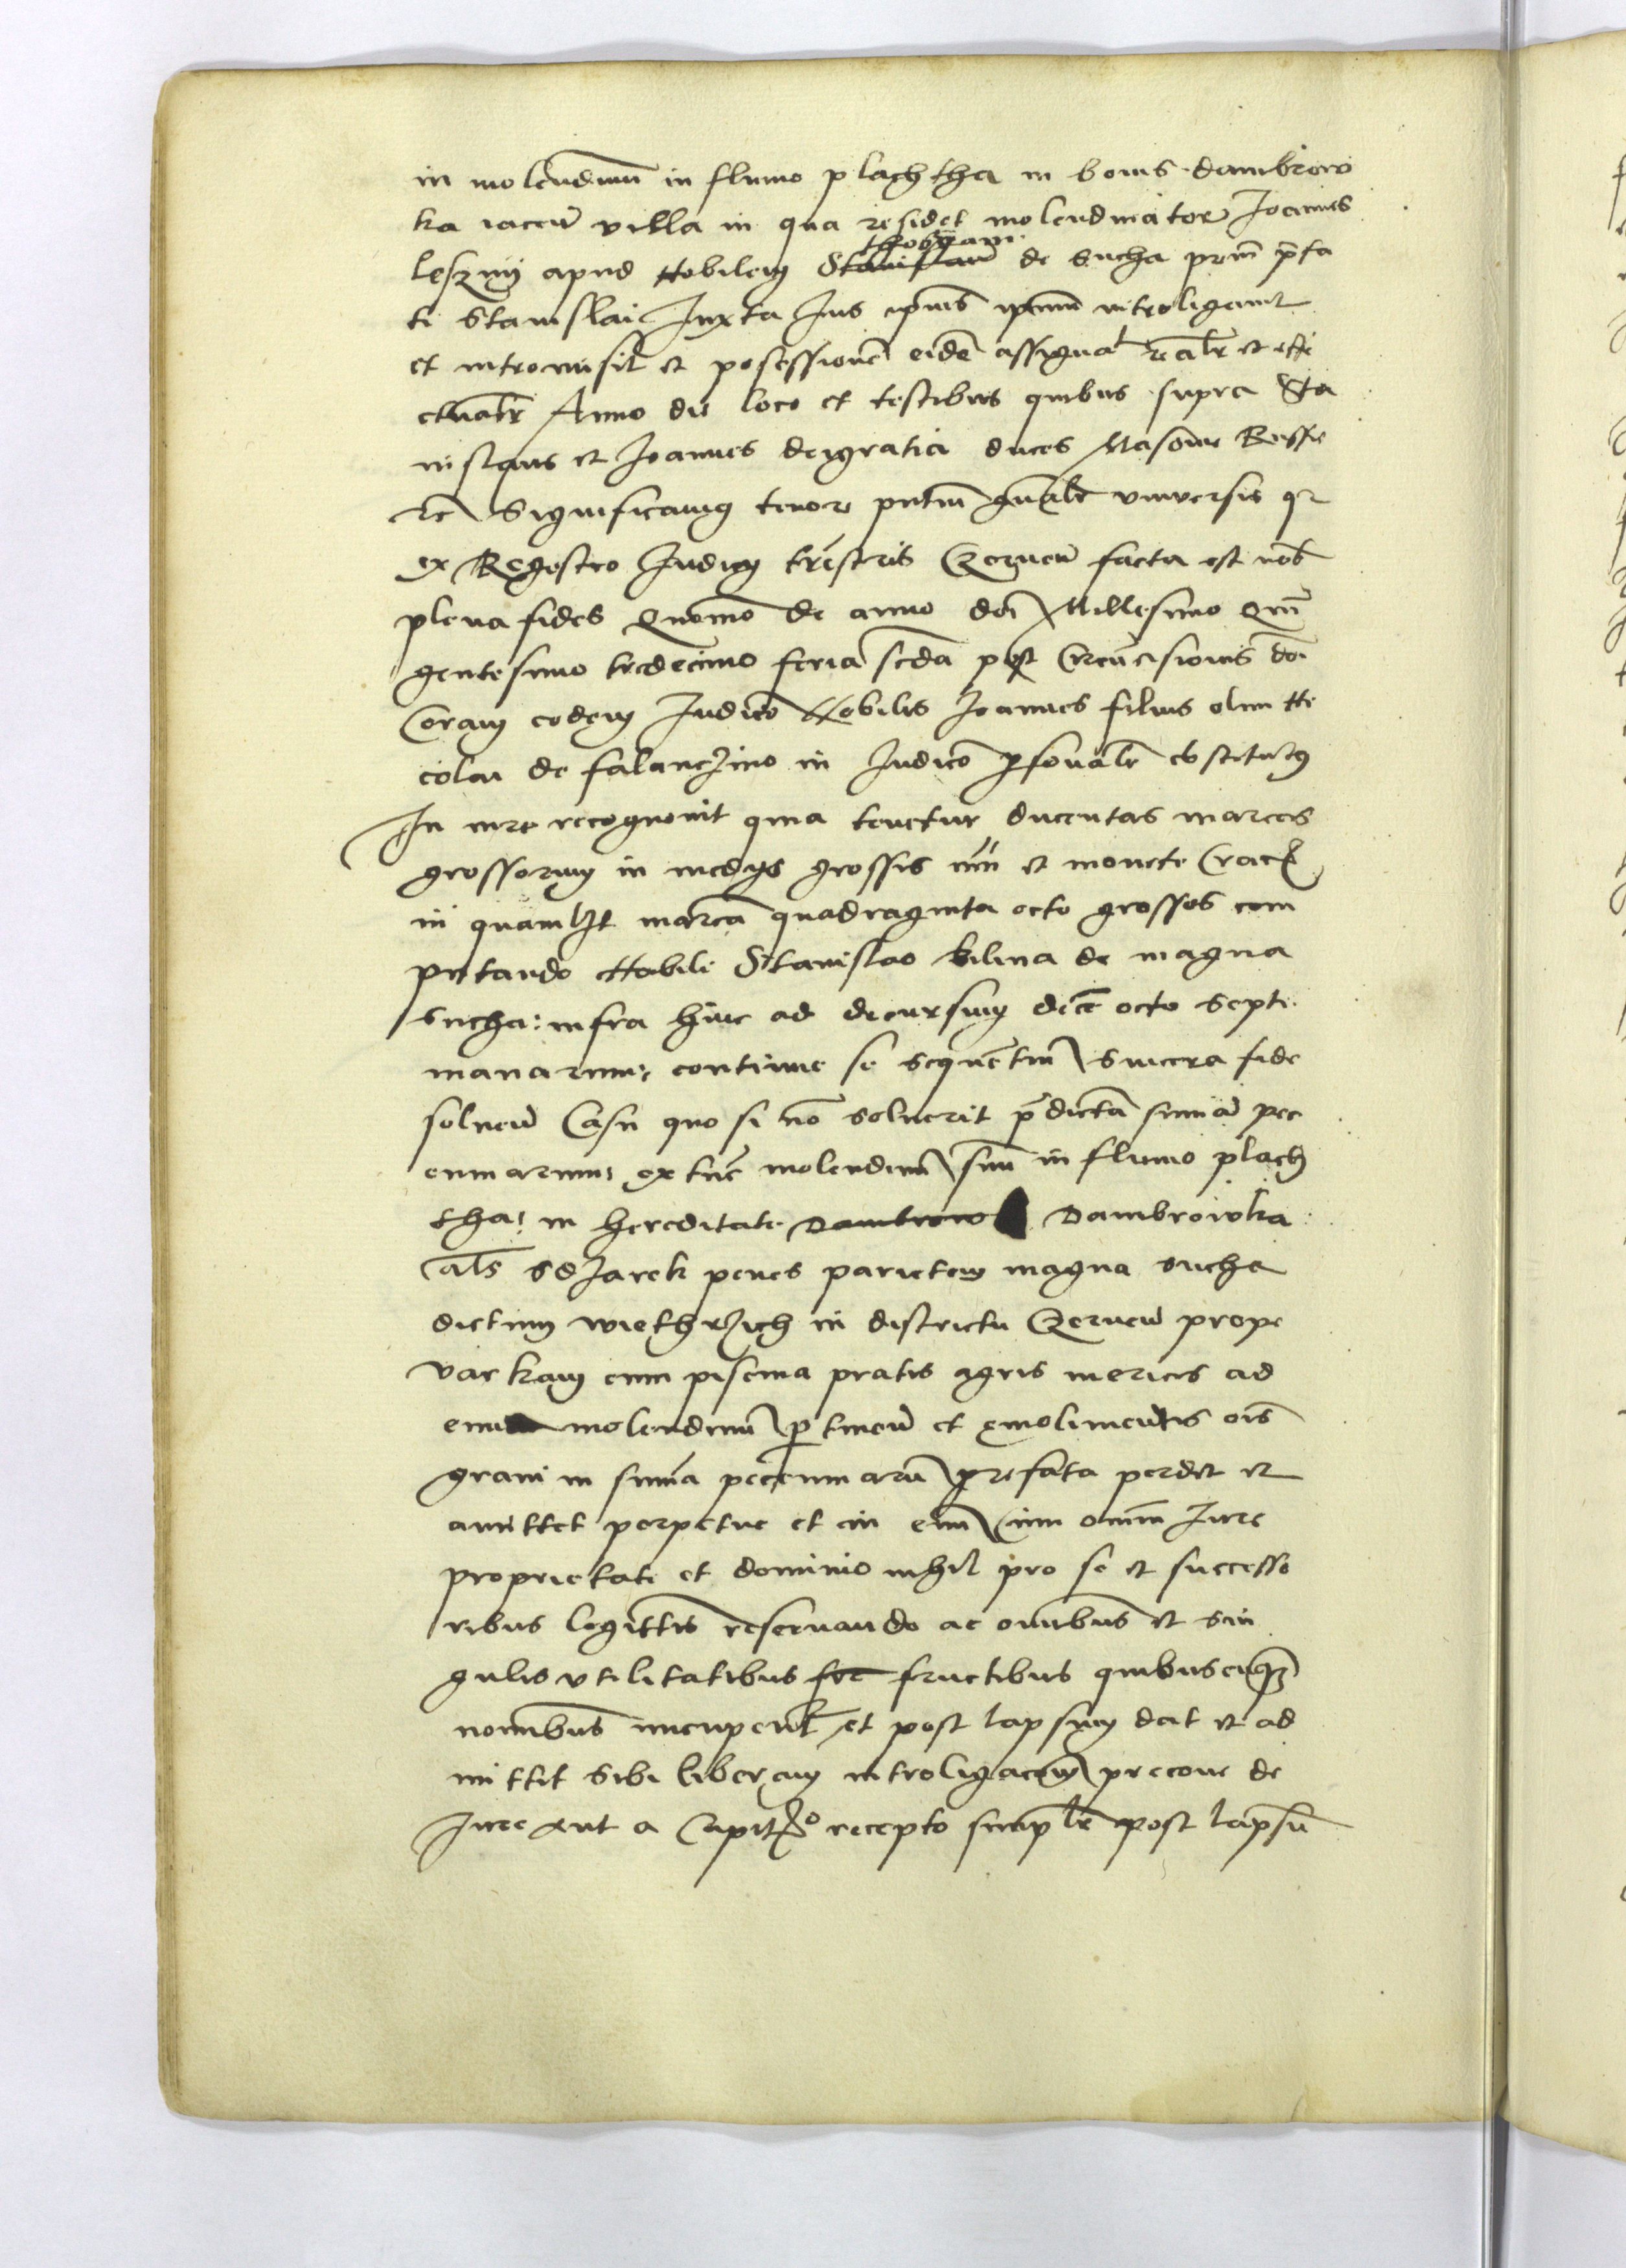 in molendinũ in flumo plachtha in bonis dambrow
ka iaceñ villa in qua residet molendinator Joannes
leszny apud Nobilem Stanislaũ thobyam de sucha prm̃ p̃fa
ti Stanislai Juxta Jus ipsius introligauit
et intromisit et posessionẽ eidẽ assignat realr̃ et effe
ctualr̃ Anno die loco et testibus quibus supra Sta
nislaus et Joannes dei gratia duces Masouie Russie
rc̃ Significamus tenore pñtiũ gñalr̃ vniuersis qr
ex Regestro Judicy trr̃estris Czerneñ facta est nob̃
plena fides Quomõ de anno dñi Millesimo Quin
gentesimo tredecimo feria scđa post Circũcisionis dñi
Coram eodem Judicio Nobilis Joannes filius olim Ni
colai de falanczino in Judicio psonalr̃ cõstitutus
In iure recognouit quia tenetur ducentas marcas
grossorum in medys grossis nũi et monete Crack
in quamlzt marcã quadraginta octo grossos com
putando Nobili Stanislao bilina de magna
sucha: infra hinc ad decursum decẽ octo septi
manarum: continue se sequẽtiũ sincera fide
solueñ Casu quo si nõ soluerit p̃dictã sum̃ã pec
cuniarum: ex tũc molendinũ suũ in flumo plach
tha: in hereditate Dambrow Dambrowka
als̃ sdzarek penes parietem magna sucha
dictum wiethrzich in districtu Czerneñ prope
varkam cum piscina pratis agris mericis ad
eum molendinũ ptineñ et emolimentis oĩs
grani in sum̃a peccuniarũ prefata perdet et
amittet perpetue et in eũ cum omni Jure
proprietate et dominio nihil pro se et successo
ribus legittis reseruando ac omnibus et sin
gulis vtilitatibus fre fructibus quibuscunqz
nominibus nucupent̃ et post lapsum dat et ad
mittit sibi liberam introligacõm precone de
Jure aut a Capitº recepto simplr̃ post lapsũ